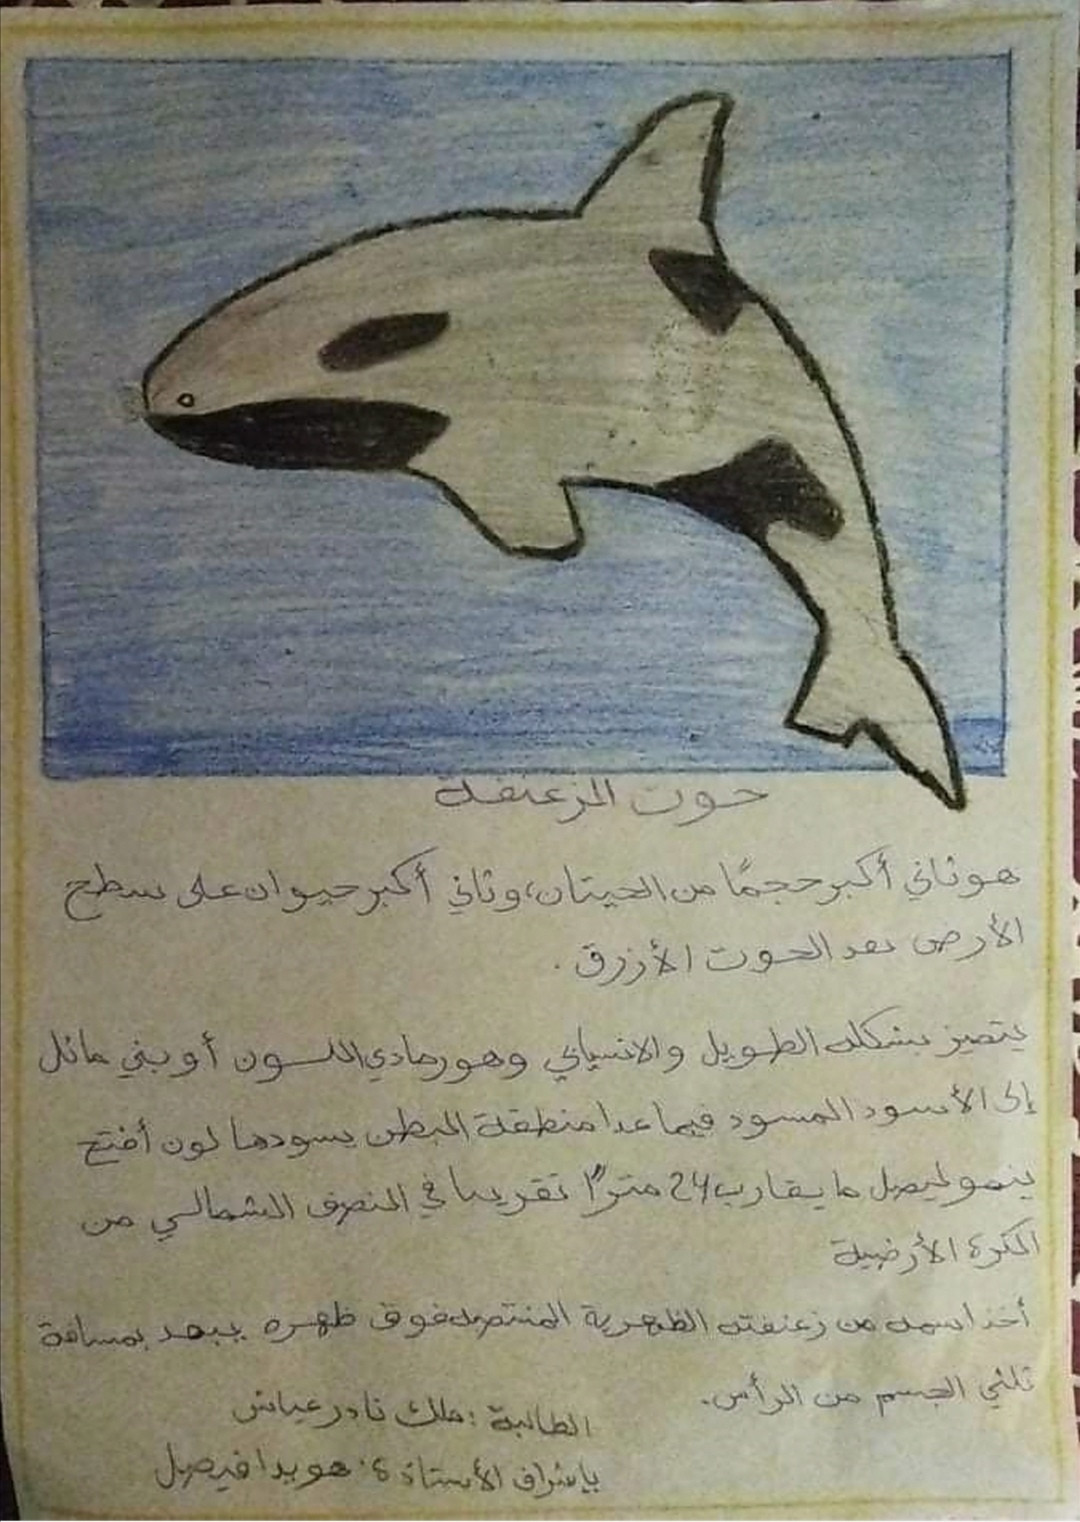 حوت الزعنفة
هو ثاني أكبر حجمًا من الحيتان، وثاني أكبر حيوان على سطح
الأرض بعد الحوت الأزرق.
يتميز بشكله الطويل والانسيابي وهو رمادي اللون أو بني مائل
إلى الأسود المسود فيما عدا منطقة البطن يسودها لون أفتح
ينمو ليصل ما يقارب 24 مترًا تقريبا في النصف الشمالي من
الكرة الأرضية
أخذ اسمه من زعنفته الظهرية المنتصبه فوق ظهره يبعد بمسافة
ثلثي الجسم من الرأس.
الطالبة: ملك نادر عياش
بإشراف الأستاذة: هويدا فيصل